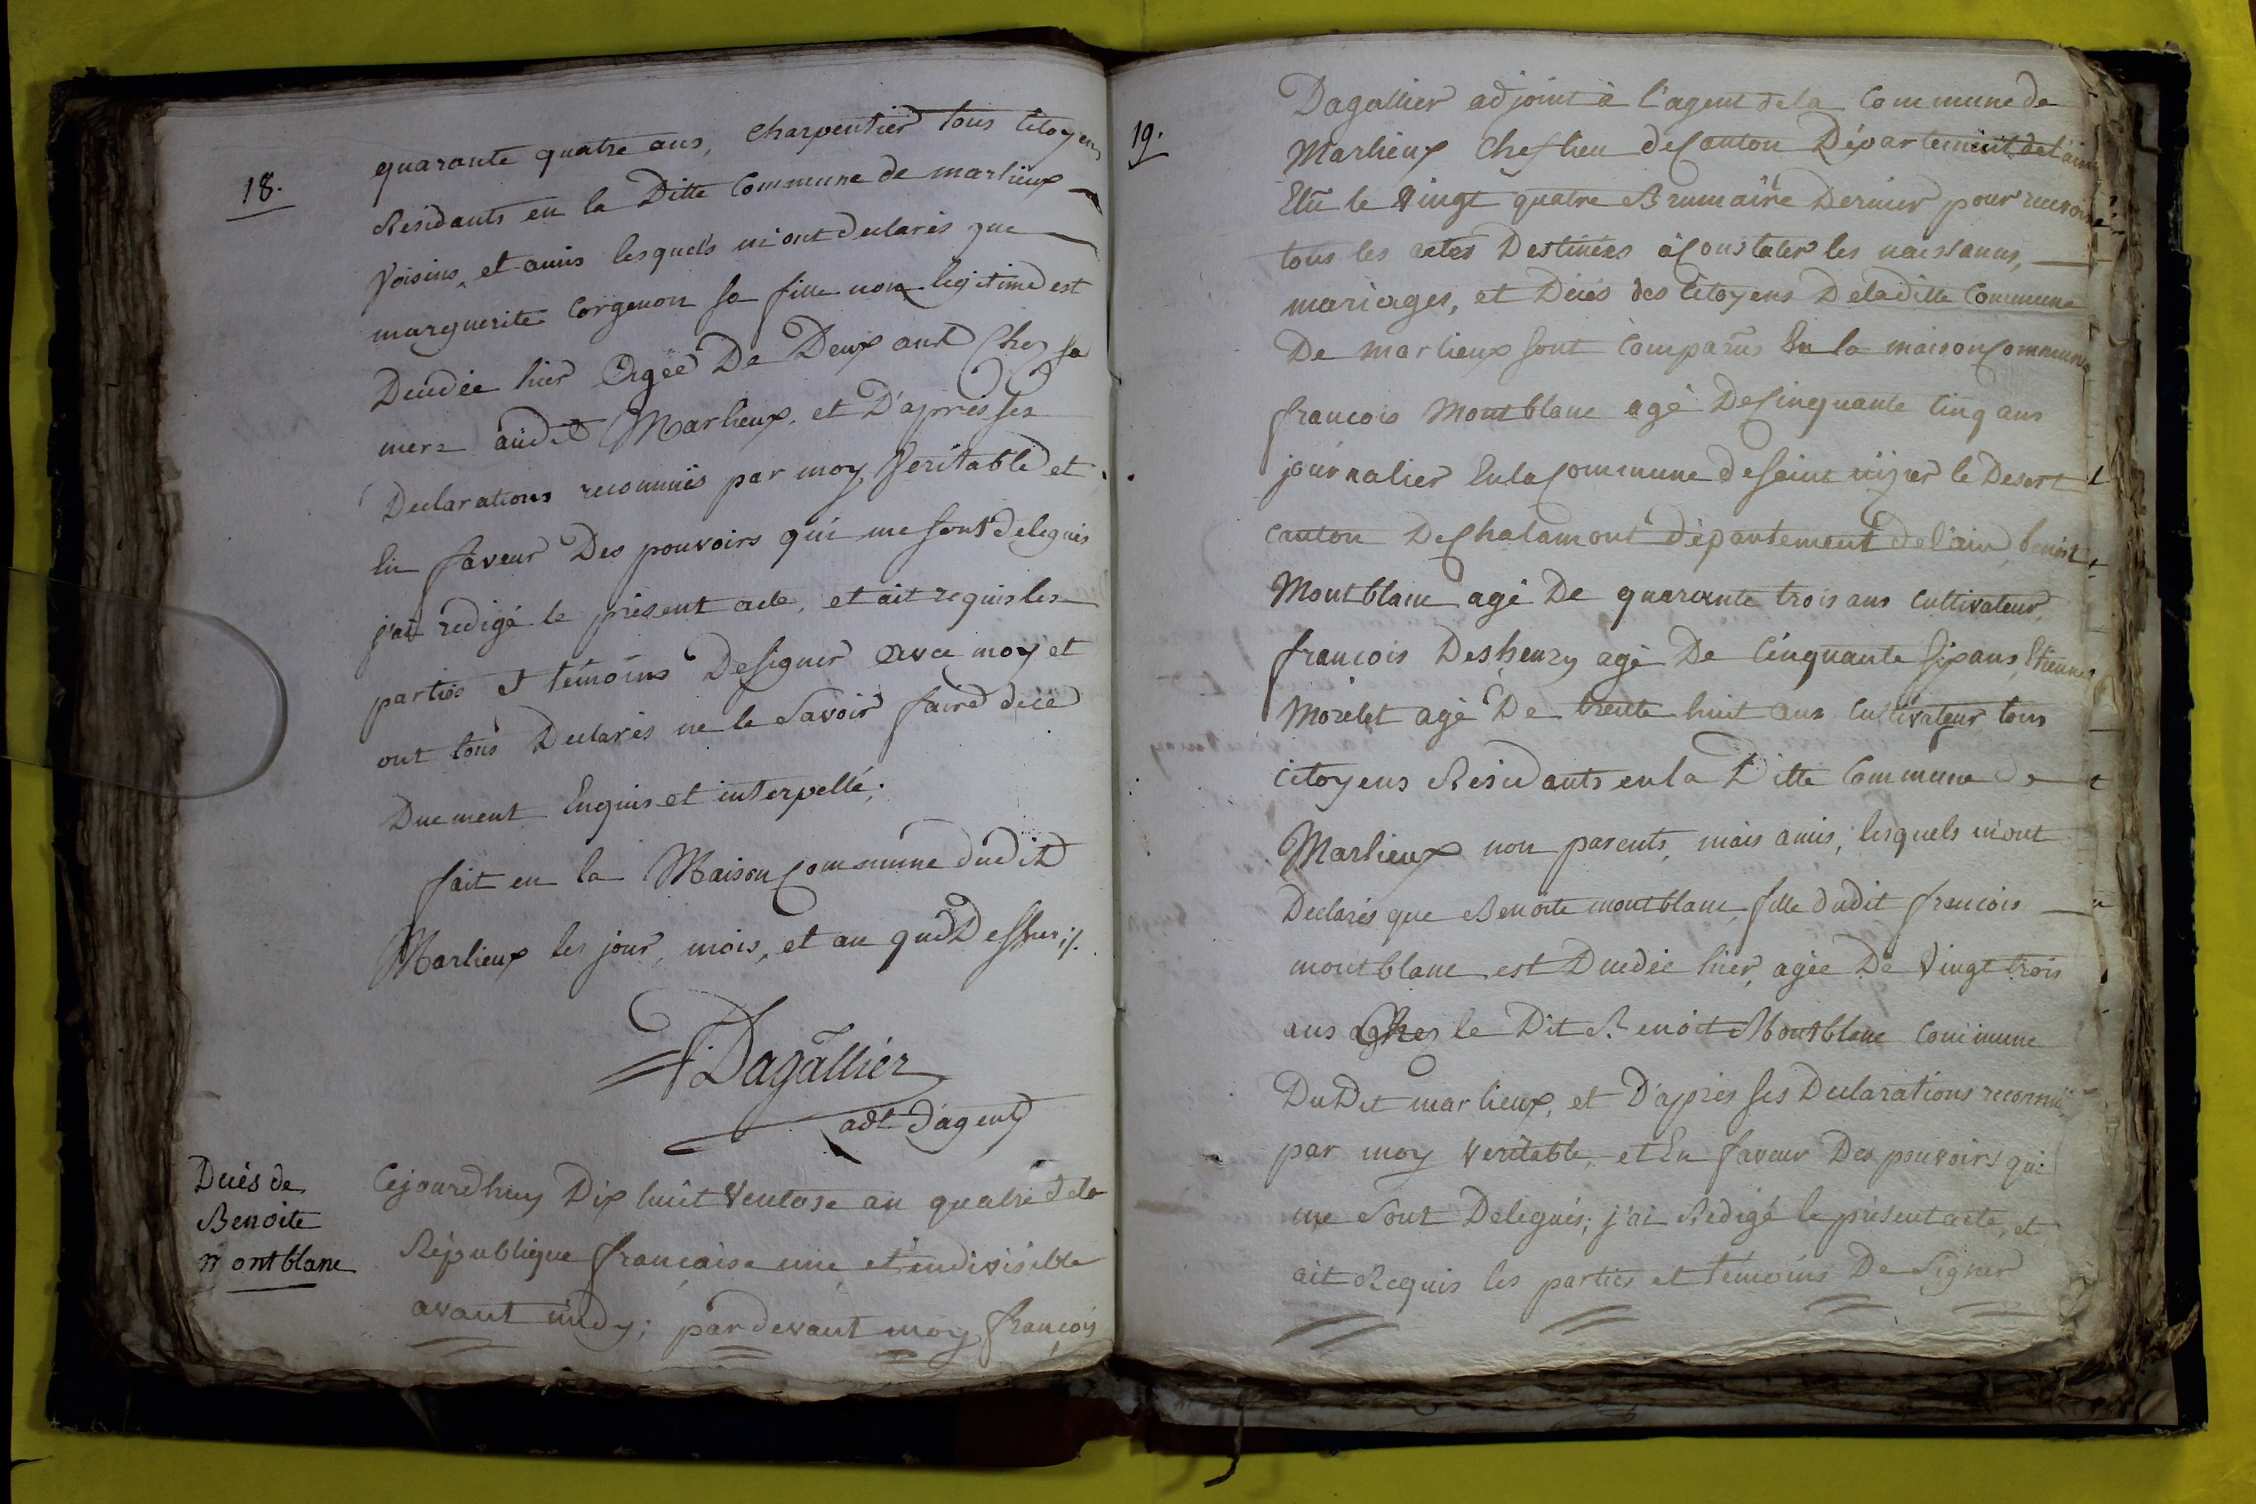 18.
quarante quatre ans, charpentier tous citoyens
Résidants en la Ditte Commune de marlieux
Voisins, et amis lesquels m'ont declarés que
marguerite Corgenon sa fille non legitime est
Decédée hier Agée De Deux ans Chez sa
mere audit Marlieux, et D'apres ses
Declarations reconnuës par moy Veritable et
En faveur Des pouvoirs qui me sont delegués
j'ai redigé le présent acte, et ait requis les
parties et témoins De signer avec moy et
ont tous Declarés ne le Savoir faire de ce
Duement Enquis et interpellé;
fait en la Maison Commune dudit
Marlieux les jour, mois, et an que Dessus ;/.
F. Dagallier
adt. d'agent
Decés de
Benoite
montblanc
Cejourdhuy Dix huit Ventose an quatre de la
République française une et indivisible
avant midy; pardevant moy françois
19.
Dagallier adjoint à l'agent de la Commune de
Marlieux Chef lieu de Canton Département de l'ain
Elu le Vingt quatre Brumaire Dernier pour recevoir
tous les actes Destinées à Constater les naissances,
mariages, et Décés des Citoyens De la ditte Commune
De Marlieux sont Comparus En la maison Commune
françois Montblanc agé De Cinquante Cinq ans
journalier En la Commune de Saint nizier le Desert
canton De Chalamont département de l'ain, benoit
Montblanc agé De quarante trois ans cultivateur,
françois Deshenry agé De Cinquante Six ans, Etienne
Morelet agé De trente huit ans Cultivateur, tous
citoyens Residants en la Ditte Commune de
Marlieux non parents, mais amis, lesquels m'ont
Declarés que Benoite montblanc, fille dudit françois
montblanc est Decedée hier, agée De Vingt trois
ans Chez le Dit Benoit Montblanc Commune
Du Dit marlieux, et D'après ses Declarations reconnuë
par moy Veritable, et En faveur Des pouvoirs qui
me Sont Delegués; j'ai Redigé le présent acte, et
ait Requis les parties et témoins De Signer